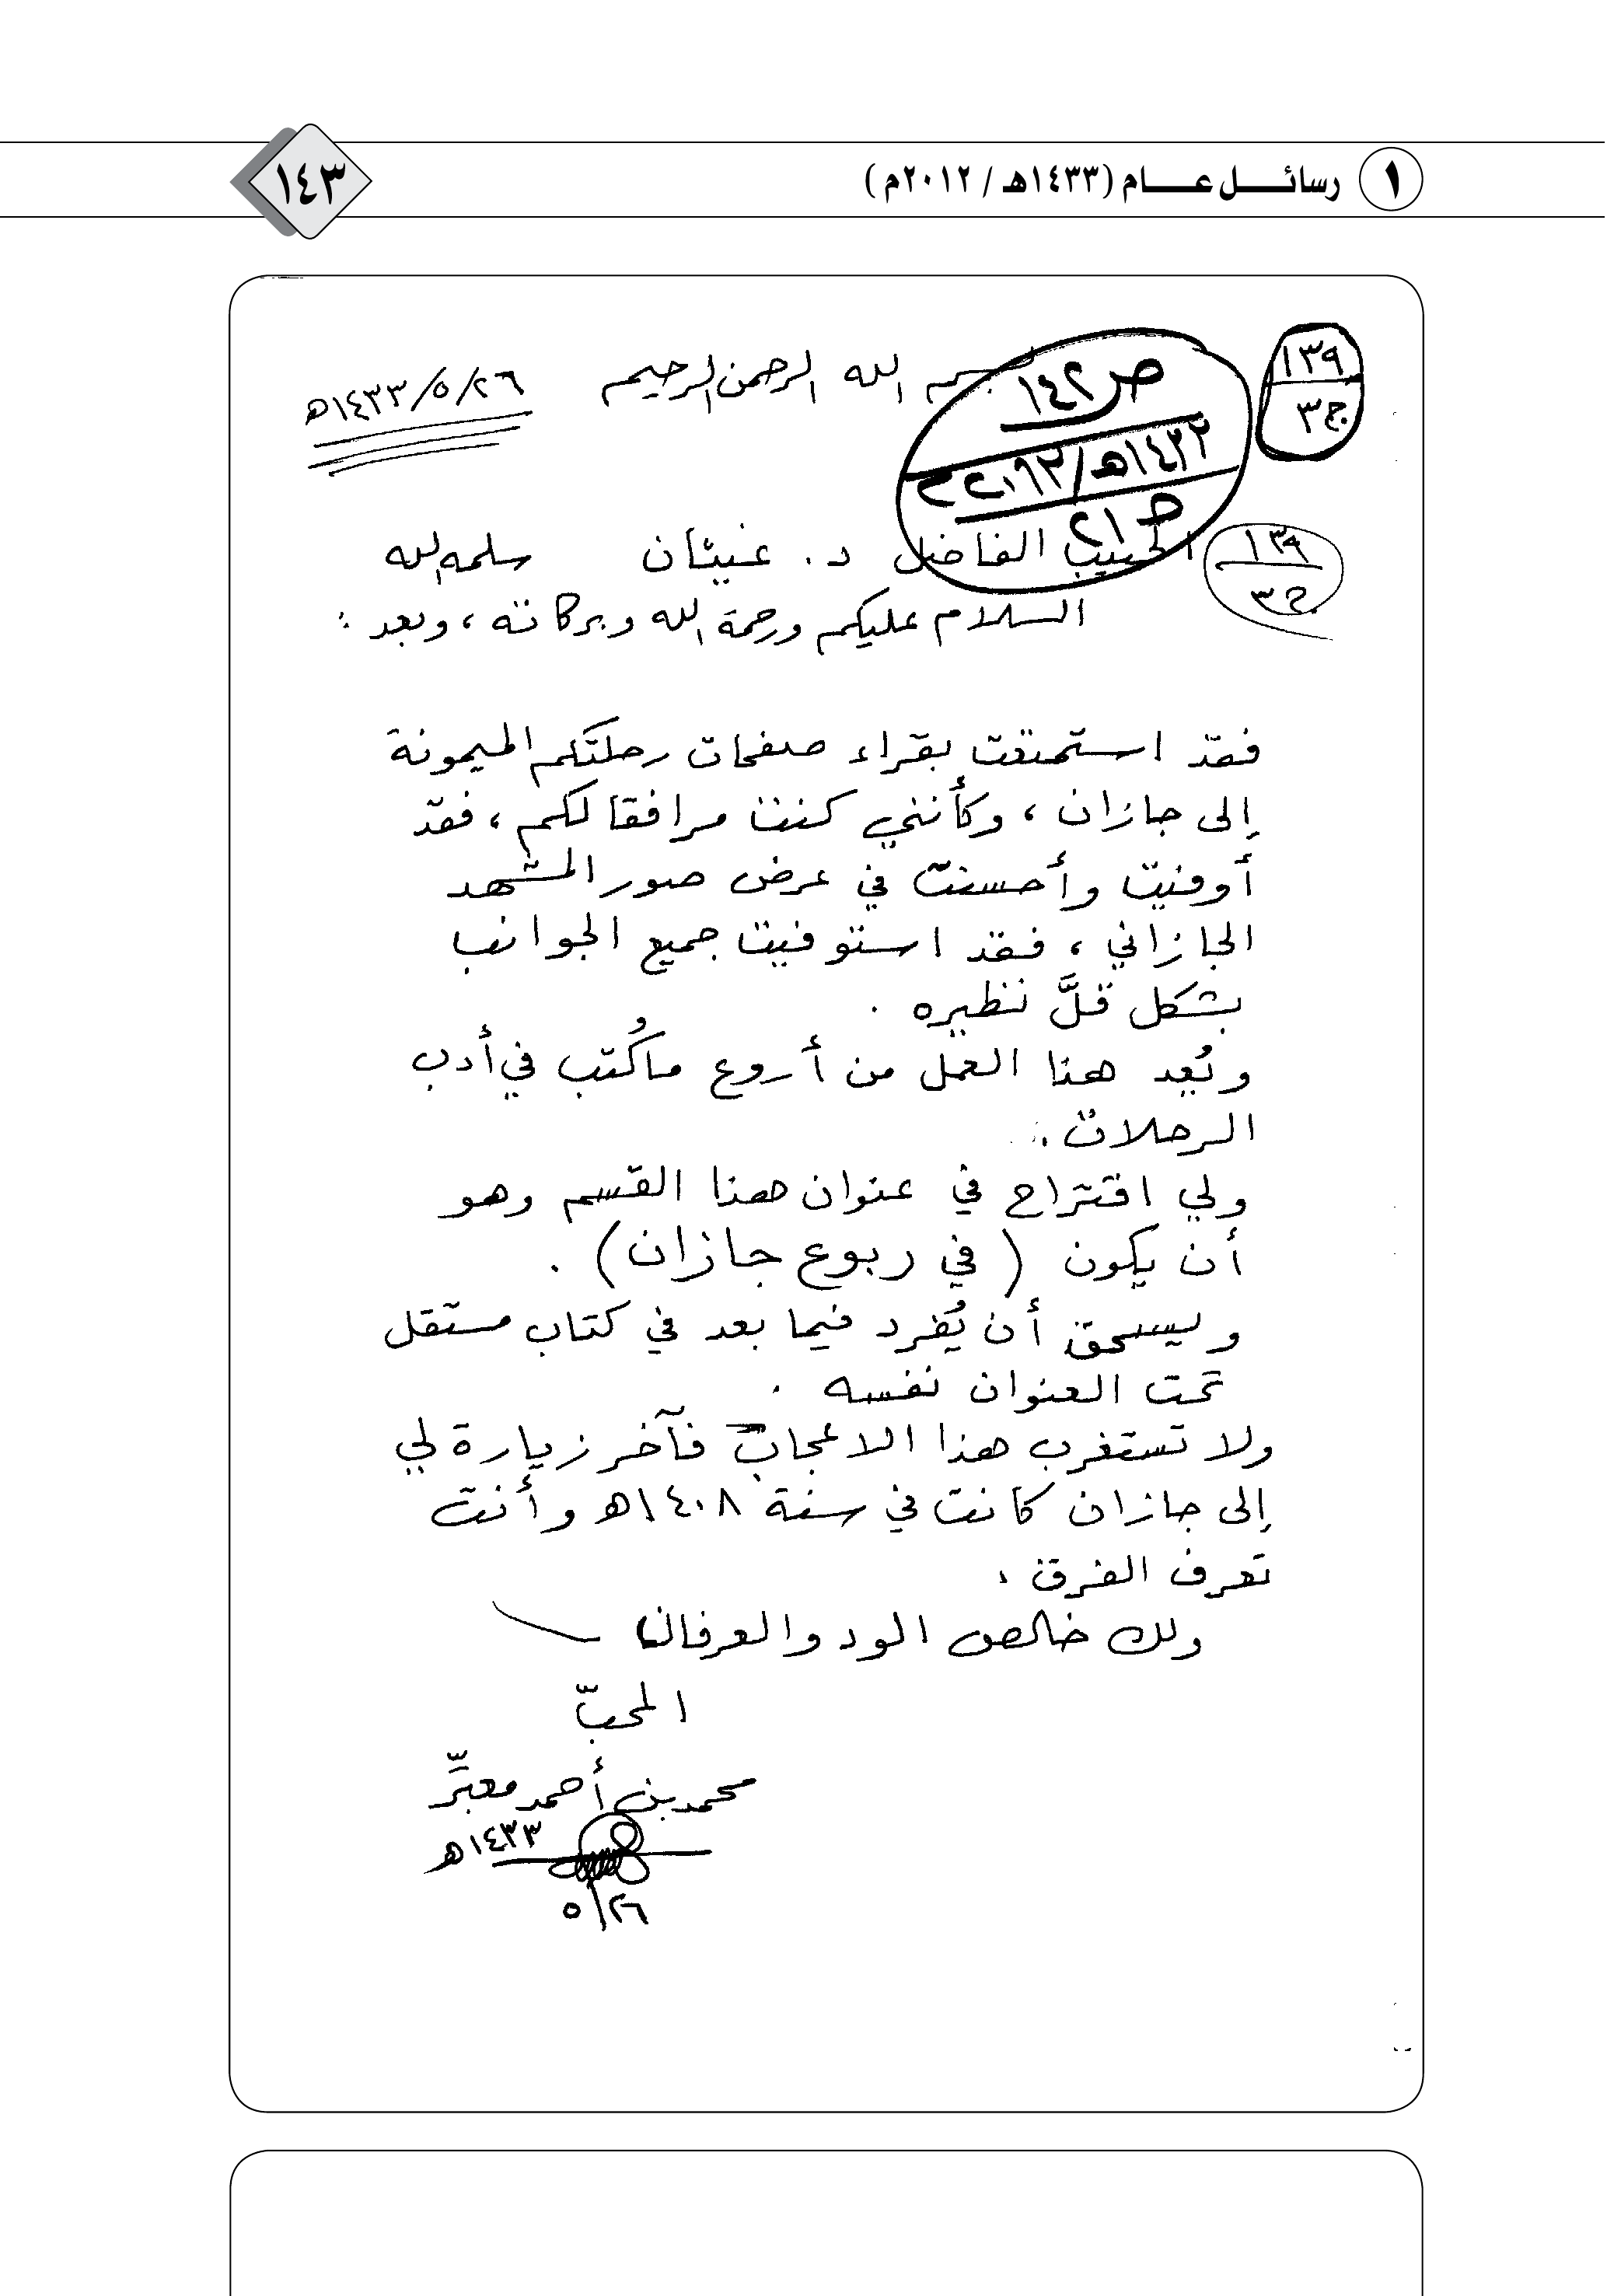 ١ رسائل عام (١٤٣٣هـ / ٢٠١٢م)
١٤٣
١٣٩
ج٣
ص ١٤٢
١٤٣٣هـ/
بسم الله الرحمن الرحيم
٢٦/٥/١٤٣٣هـ
١٣٩
ج٣
الحبيب الفاضل د. غيثان سلمه الله
السلام عليكم ورحمة الله وبركاته ، وبعد :
فقد استمتعت بقراء صفحات رحلتكم الميمونة
إلى جازان ، وكأنني كنت مرافقا لكم ، فقد
أوفيت وأحسنت في عرض صور المشهد
الجازاني ، فقد استوفيت جميع الجوانب
بشكل قلَّ نظيره .
ويُعد هذا العمل من أروع ما كُتب في أدب
الرحلات .
ولي اقتراح في عنوان هذا القسم وهو
أن يكون ( في ربوع جازان ) .
ويستحق أن يُفرد فيما بعد في كتاب مستقل
تحت العنوان نفسه .
ولا تستغرب هذا الاعجاب فآخر زيارة لي
إلى جازان كانت في سنة ١٤٠٨هـ وأنت
تعرف الفرق .
ولك خالص الود والعرفان
المحبّ
محمد بن أحمد معبّر
١٤٣٣هـ
٢٦/٥